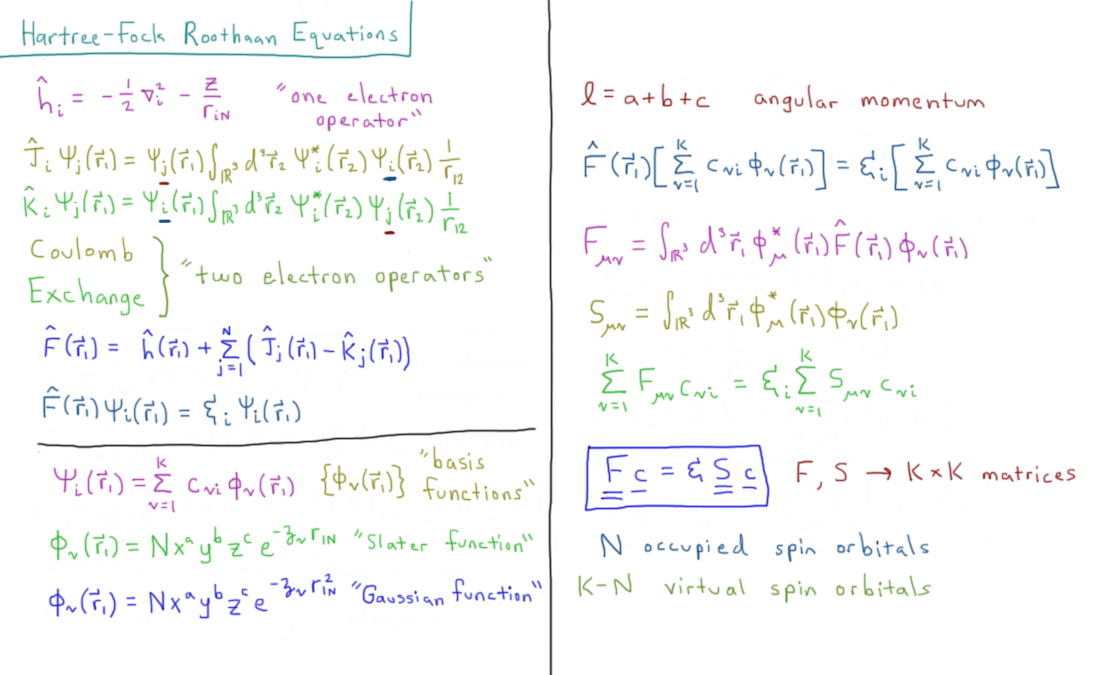 Hartree-Fock Roothaan Equations
ĥᵢ = -½ ∇ᵢ² - Z/r_iN "one electron
operator"
Ĵᵢ Ψⱼ(r⃗₁) = Ψⱼ(r⃗₁) ∫_ℝ³ d³r⃗₂ Ψᵢ*(r⃗₂) Ψᵢ(r⃗₂) 1/r₁₂
K̂ᵢ Ψⱼ(r⃗₁) = Ψᵢ(r⃗₁) ∫_ℝ³ d³r⃗₂ Ψᵢ*(r⃗₂) Ψⱼ(r⃗₂) 1/r₁₂
Coulomb
Exchange } "two electron operators"
F̂(r⃗₁) = ĥ(r⃗₁) + Σ_{j=1}^{N} (Ĵⱼ(r⃗₁) - K̂ⱼ(r⃗₁))
F̂(r⃗₁) Ψᵢ(r⃗₁) = Ɛᵢ Ψᵢ(r⃗₁)
Ψᵢ(r⃗₁) = Σ_{ν=1}^{K} c_νi ϕ_ν(r⃗₁) {ϕ_ν(r⃗₁)} "basis
functions"
ϕ_ν(r⃗₁) = N x^a y^b z^c e^{-ζ_ν r_1N} "Slater function"
ϕ_ν(r⃗₁) = N x^a y^b z^c e^{-ζ_ν r_1N²} "Gaussian function"
l = a+b+c angular momentum
F̂(r⃗₁)[Σ_{ν=1}^{K} c_νi ϕ_ν(r⃗₁)] = Ɛᵢ[Σ_{ν=1}^{K} c_νi ϕ_ν(r⃗₁)]
F_μν = ∫_ℝ³ d³r⃗₁ ϕ_μ*(r⃗₁) F̂(r⃗₁) ϕ_ν(r⃗₁)
S_μν = ∫_ℝ³ d³r⃗₁ ϕ_μ*(r⃗₁) ϕ_ν(r⃗₁)
Σ_{ν=1}^{K} F_μν c_νi = Ɛᵢ Σ_{ν=1}^{K} S_μν c_νi
F c = Ɛ S c F, S → K×K matrices
N occupied spin orbitals
K-N virtual spin orbitals